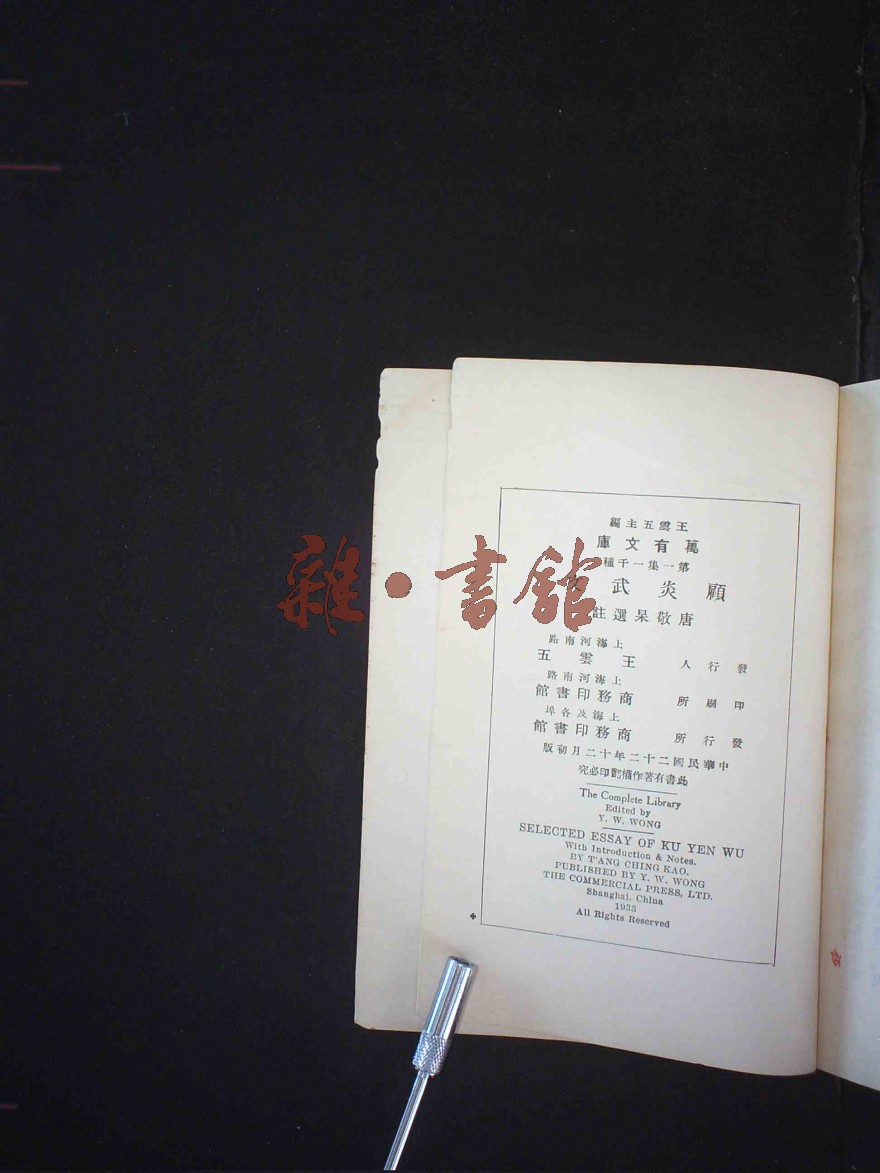 王雲五主編
萬有文庫
第一集一千種
顧炎武文
唐敬杲選註
上海河南路
發行人 王雲五
上海河南路
印刷所 商務印書館
上海及各埠
發行所 商務印書館
中華民國二十二年十二月初版
此書有著作權翻印必究
The Complete Library
Edited by
Y. W. WONG
SELECTED ESSAY OF KU YEN WU
With Introduction & Notes.
BY T'ANG CHING KAO.
PUBLISHED BY Y. W. WONG
THE COMMERCIAL PRESS, LTD.
Shanghai, China
1933
All Rights Reserved
雜•書館